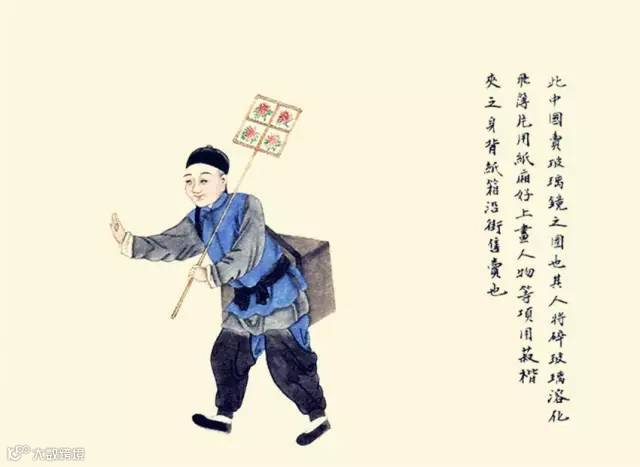 此中國賣玻璃鏡之圖也其人將碎玻璃溶化
飛薄片用紙廂好上畫人物等項用菽楷
夾之身背紙箱沿街售賣也
大数跨境